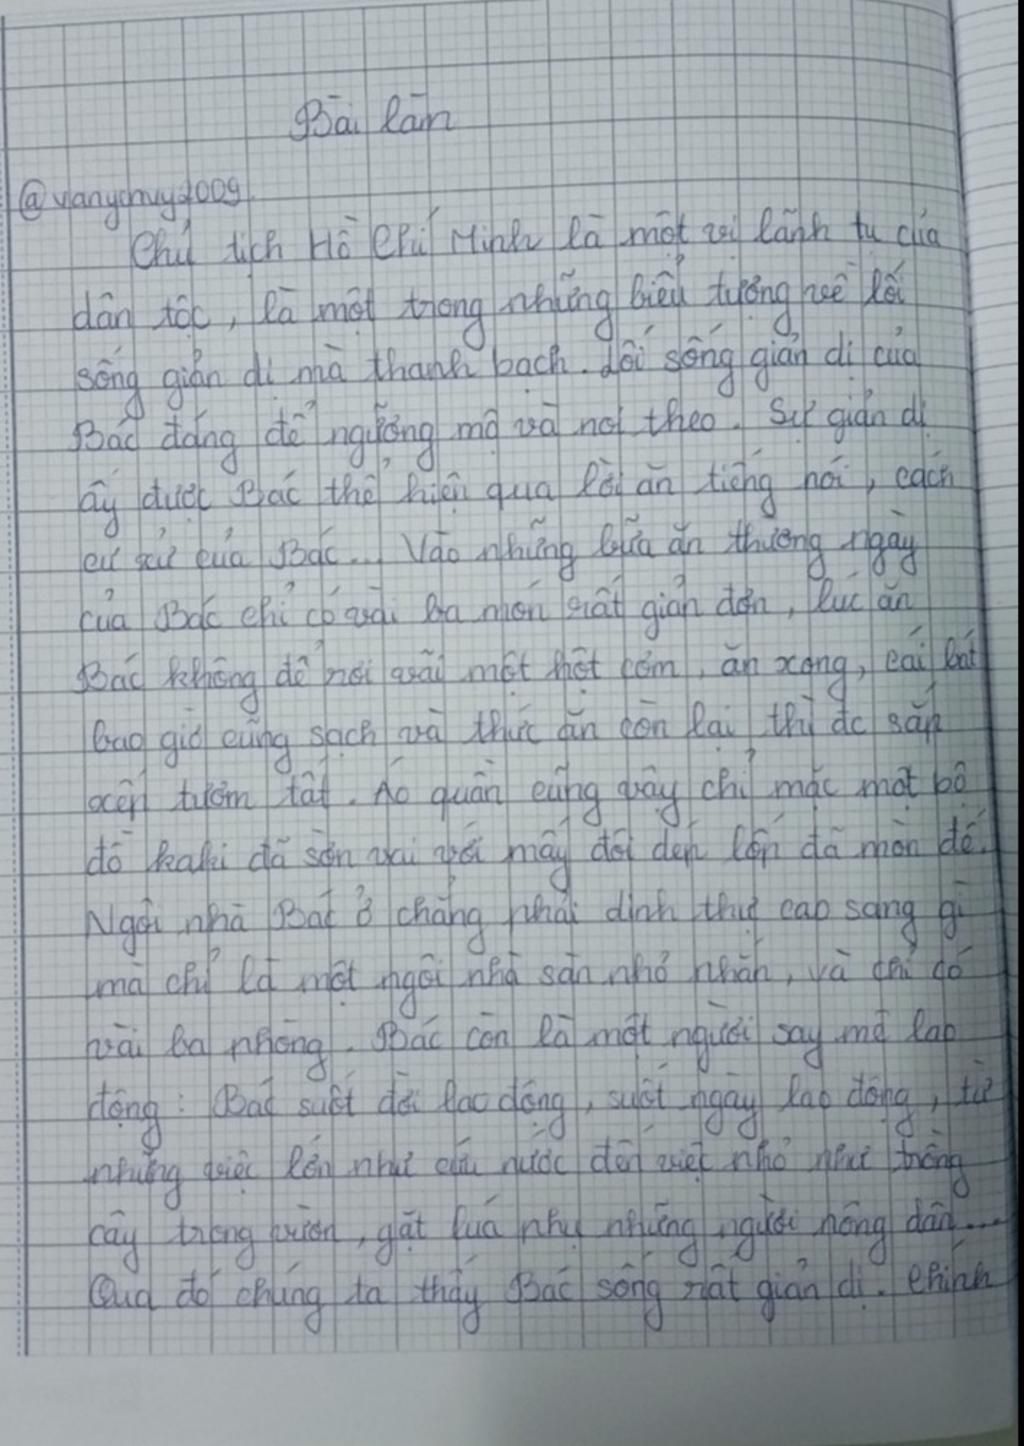 Bài làm
@vanychuy2009
Chủ tịch Hồ Chí Minh là một vị lãnh tụ của
dân tộc, là một trong những biểu tượng về lối
sống giản dị mà thanh bạch. Lối sống giản dị của
Bác đáng để ngưỡng mộ và noi theo. Sự giản dị
ấy được Bác thể hiện qua lời ăn tiếng nói, cách
cư xử của Bác... Vào những bữa ăn thường ngày
của Bác chỉ có vài ba món rất giản đơn, lúc ăn
Bác không để rơi vãi một hột cơm, ăn xong, cái bát
bao giờ cũng sạch và thức ăn còn lại thì đc sắp
xếp tươm tất. Áo quần cũng vậy chỉ mặc một bộ
đồ kaki đã sờn vai với mấy đôi dép lốp đã mòn đế.
Ngôi nhà Bác ở chẳng phải dinh thự cao sang gì
mà chỉ là một ngôi nhà sàn nhỏ nhắn, và chỉ có
vài ba phòng. Bác còn là một người say mê lao
động: Bác suốt đời lao động, suốt ngày lao động, từ
những việc lớn như cứu nước đến việc nhỏ như trồng
cây trong vườn, gặt lúa như những người nông dân...
Qua đó chúng ta thấy Bác sống rất giản dị. Chính